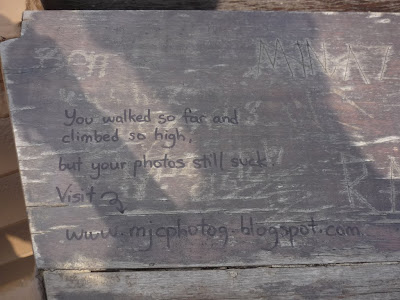 You walked so far and
climbed so high,
but your photos still suck.
Visit
www.mjcphotog.blogspot.com